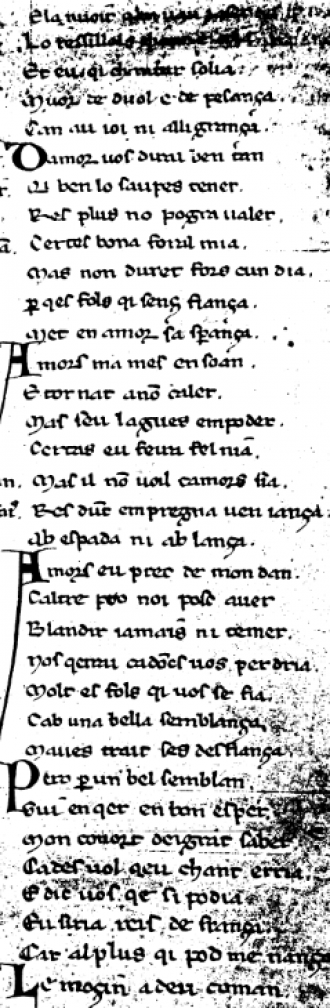 Et eu qi chantar solia.
Muor de duol e de pesança.
Can au ioi ni alligrança.
Damor uos dirai ben tan
Qi ben lo saupes tener.
Res plus no pogra ualer.
Certes bona foill mia.
Mas non duret fors cun dia.
ꝑ qes fols qi senꝭ fiança.
Met en amor sa sꝑança.
Amors ma mes en soan.
E tornat a nō caler.
Mas seu lagues en poder.
Certas eu feira fel mā.
Mas il nō uol camors sia.
Res dūt em pregna ueniança.
Ab espada ni ab lança.
Amors eu prec de mon dan.
Caltre pro noi posc auer
Blandir iamais ni temer.
Nos qerrai cadōcs uos perdria.
Molt es fols qi uos se fia.
Cab una bella semblança.
Maues trait ses desfiança.
Pero ꝑ un bel semblan
Sui enqer en bon esper.
Mon conort deigrat saber
Cades uol qeu chant e ria.
E dic uos qe si podia
Eu siria reis de frança.
Car al plus qi pod me nança
Le mogin a deu coman